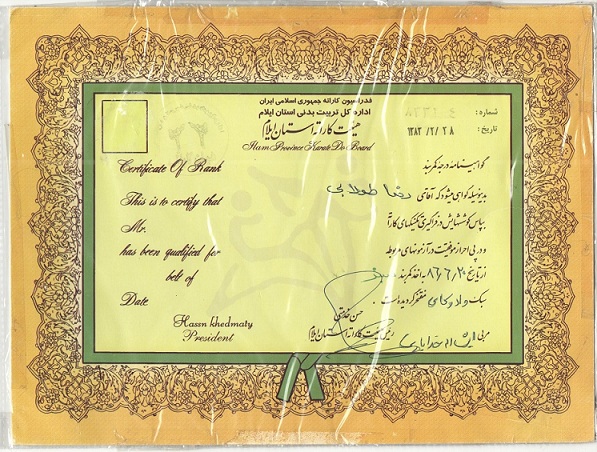 فدراسیون کاراته جمهوری اسلامی ایران
اداره کل تربیت بدنی استان ایلام
هیئت کاراته استان ایلام
Ilam Province Karate Do Board
شماره:
تاریخ: ۱۳۸۲/۲/۲۸
Certificate Of Rank
This is to certify that
Mr.
has been qualified for
belt of
Date
Hassn khedmaty
President
گواهینامه درجه کمربند
بدینوسیله گواهی میشود که آقای رضا طولابی
بپاس کوششهایش در فراگیری تکنیکهای کاراته
و در پی احراز موفقیت در آزمونهای مربوطه
از تاریخ ۸۶/۶/۲۰ به اخذ کمربند
سبک وادوکای مفتخر گردیده است.
حسن خدمتی
رئیس هیئت کاراته استان ایلام
مربی